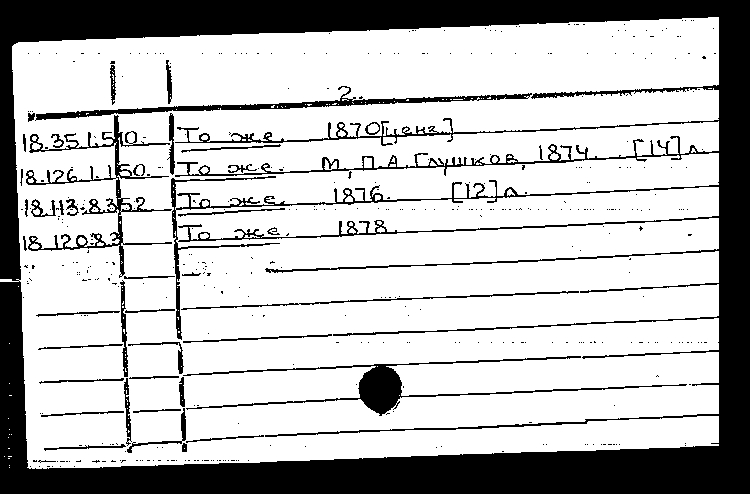 2.
18.35.1.510. То же. 1870[ценз.]
18.126.1.150. То же. М., П.А. Глушков, 1874. [14] л.
18.113.8.352 То же. 1876. [12] л.
18.120.8.3 То же. 1878.